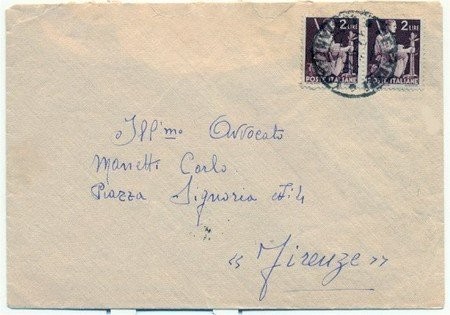 2 LIRE 2 LIRE
POSTE ITALIANE POSTE ITALIANE
Ill.mo Avvocato
Manetti Carlo
Piazza Signoria
"Firenze"